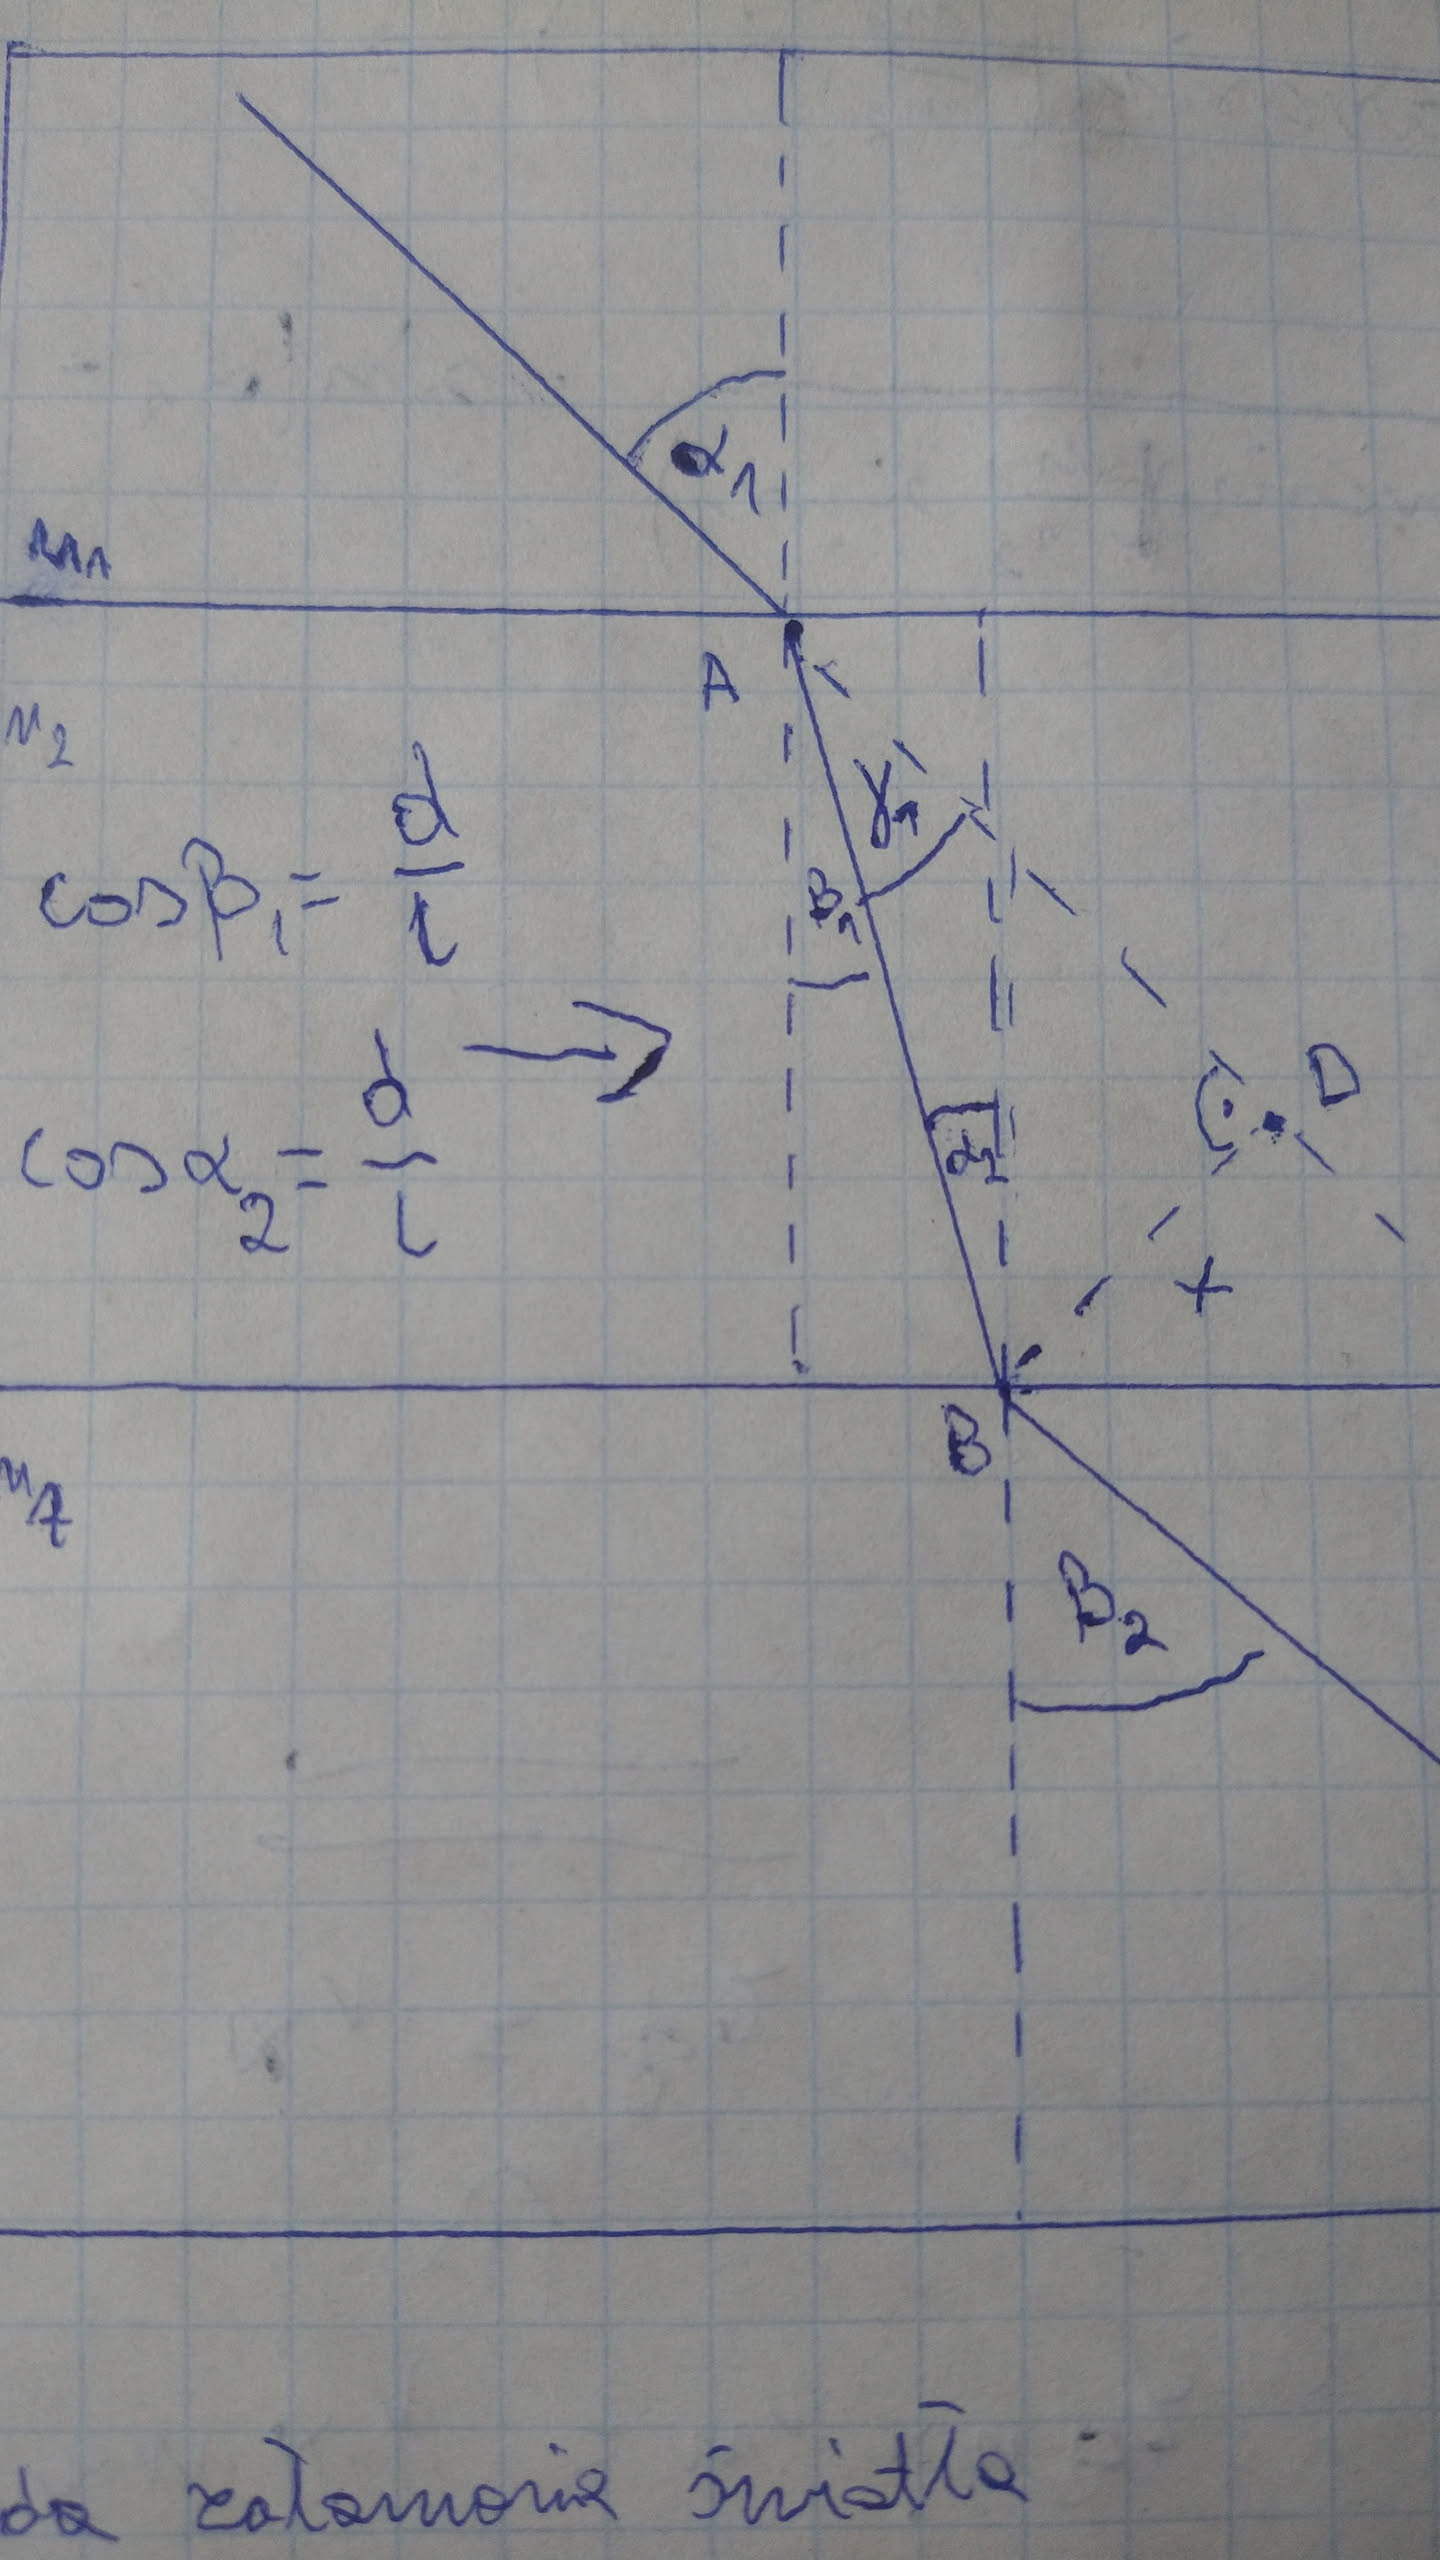 α₁
n₁
A
n₂
γ₁
cosβ₁ = d/l
β₁
D
cosα₂ = d/l
α₂
x
B
n₁
β₂
da załamania światła